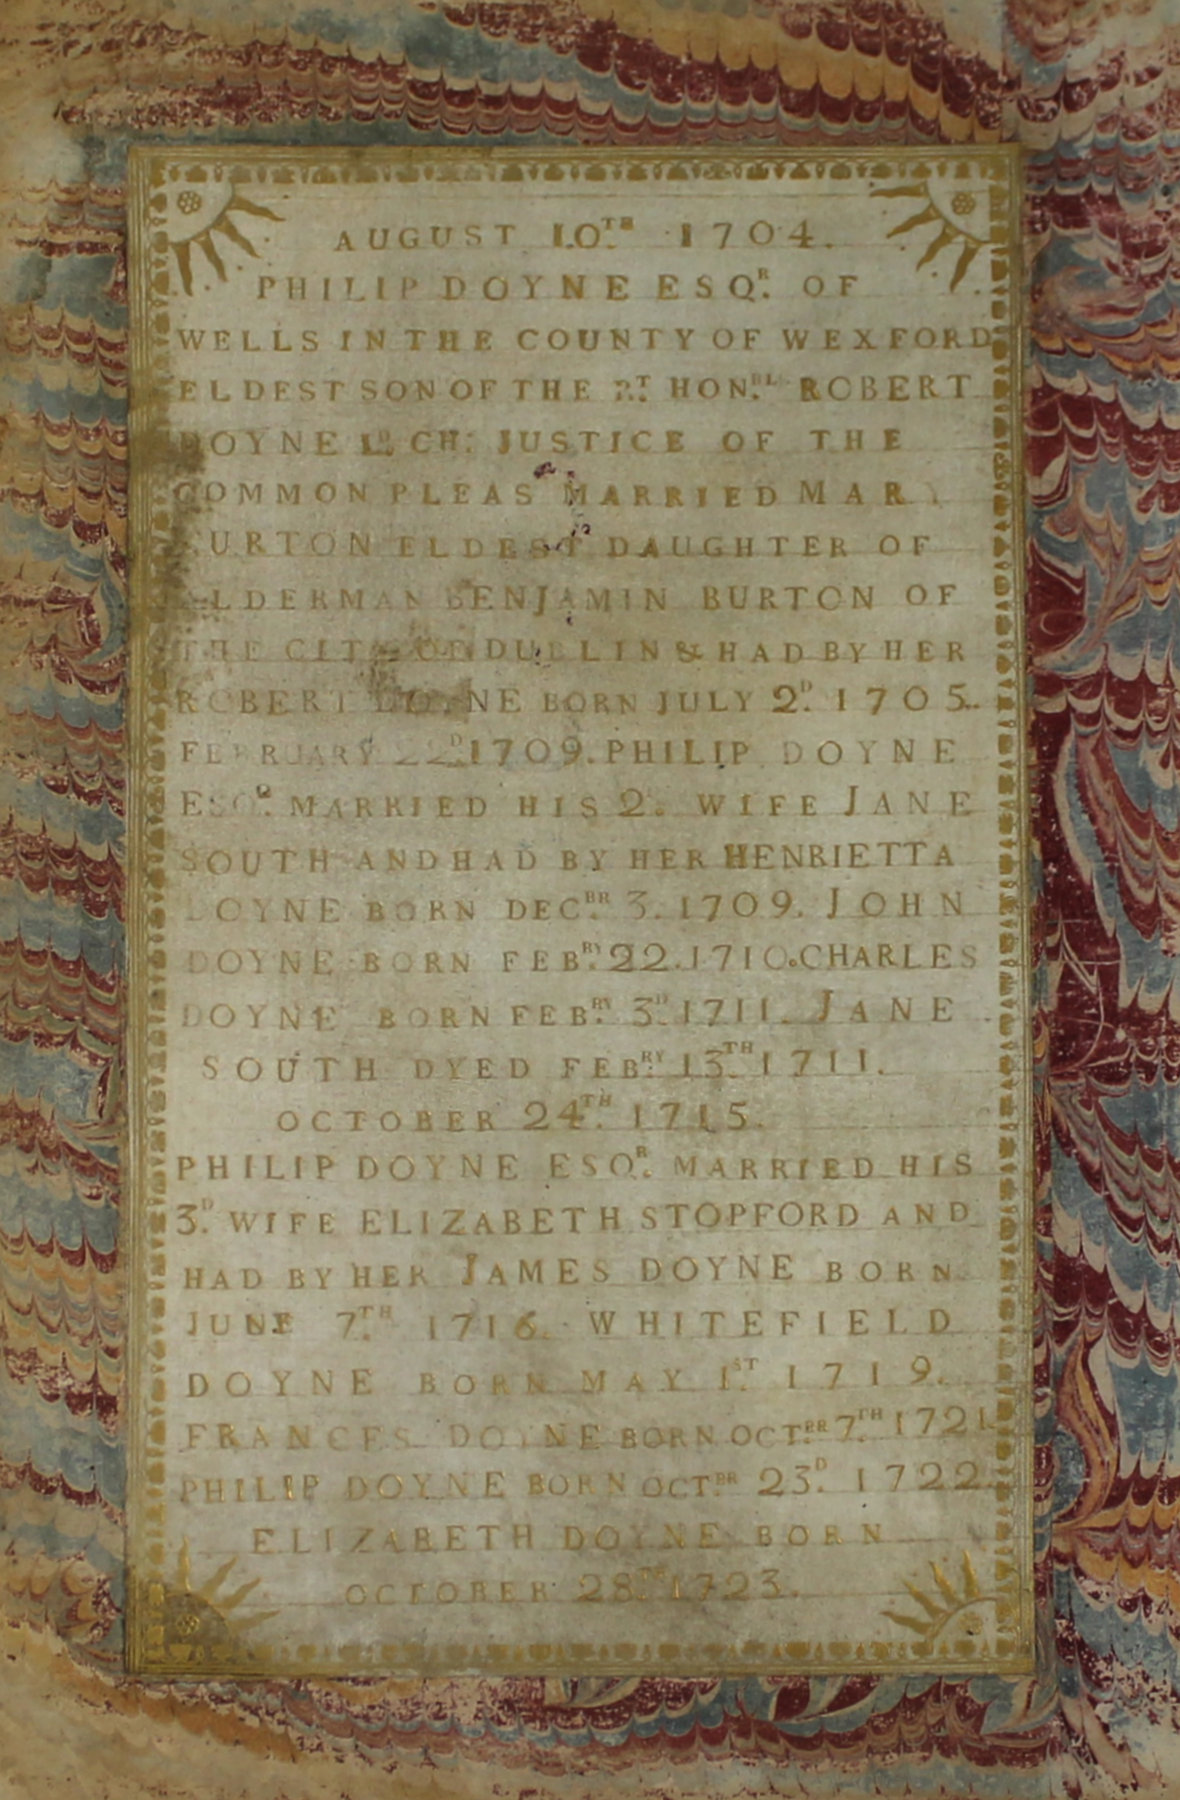 AUGUST 10.TH 1704.
PHILIP DOYNE ESQ.R OF
WELLS IN THE COUNTY OF WEXFORD
ELDEST SON OF THE R.T HON.BL ROBERT
DOYNE L.D CH: JUSTICE OF THE
COMMON PLEAS MARRIED MARY
BURTON ELDEST DAUGHTER OF
ALDERMAN BENJAMIN BURTON OF
THE CITY OF DUBLIN & HAD BY HER
ROBERT DOYNE BORN JULY 2.D 1705.
FEBRUARY 22.D 1709. PHILIP DOYNE
ESQ.R MARRIED HIS 2.D WIFE JANE
SOUTH AND HAD BY HER HENRIETTA
DOYNE BORN DEC.BR 3. 1709. JOHN
DOYNE BORN FEB.RY 22. 1710. CHARLES
DOYNE BORN FEB.RY 3.D 1711. JANE
SOUTH DYED FEB.RY 13.TH 1711.
OCTOBER 24.TH 1715.
PHILIP DOYNE ESQ.R MARRIED HIS
3.D WIFE ELIZABETH STOPFORD AND
HAD BY HER JAMES DOYNE BORN
JUNE 7.TH 1716. WHITEFIELD
DOYNE BORN MAY 1.ST 1719.
FRANCES DOYNE BORN OCT.BR 7.TH 1721.
PHILIP DOYNE BORN OCT.BR 23.D 1722.
ELIZABETH DOYNE BORN
OCTOBER 28.TH 1723.